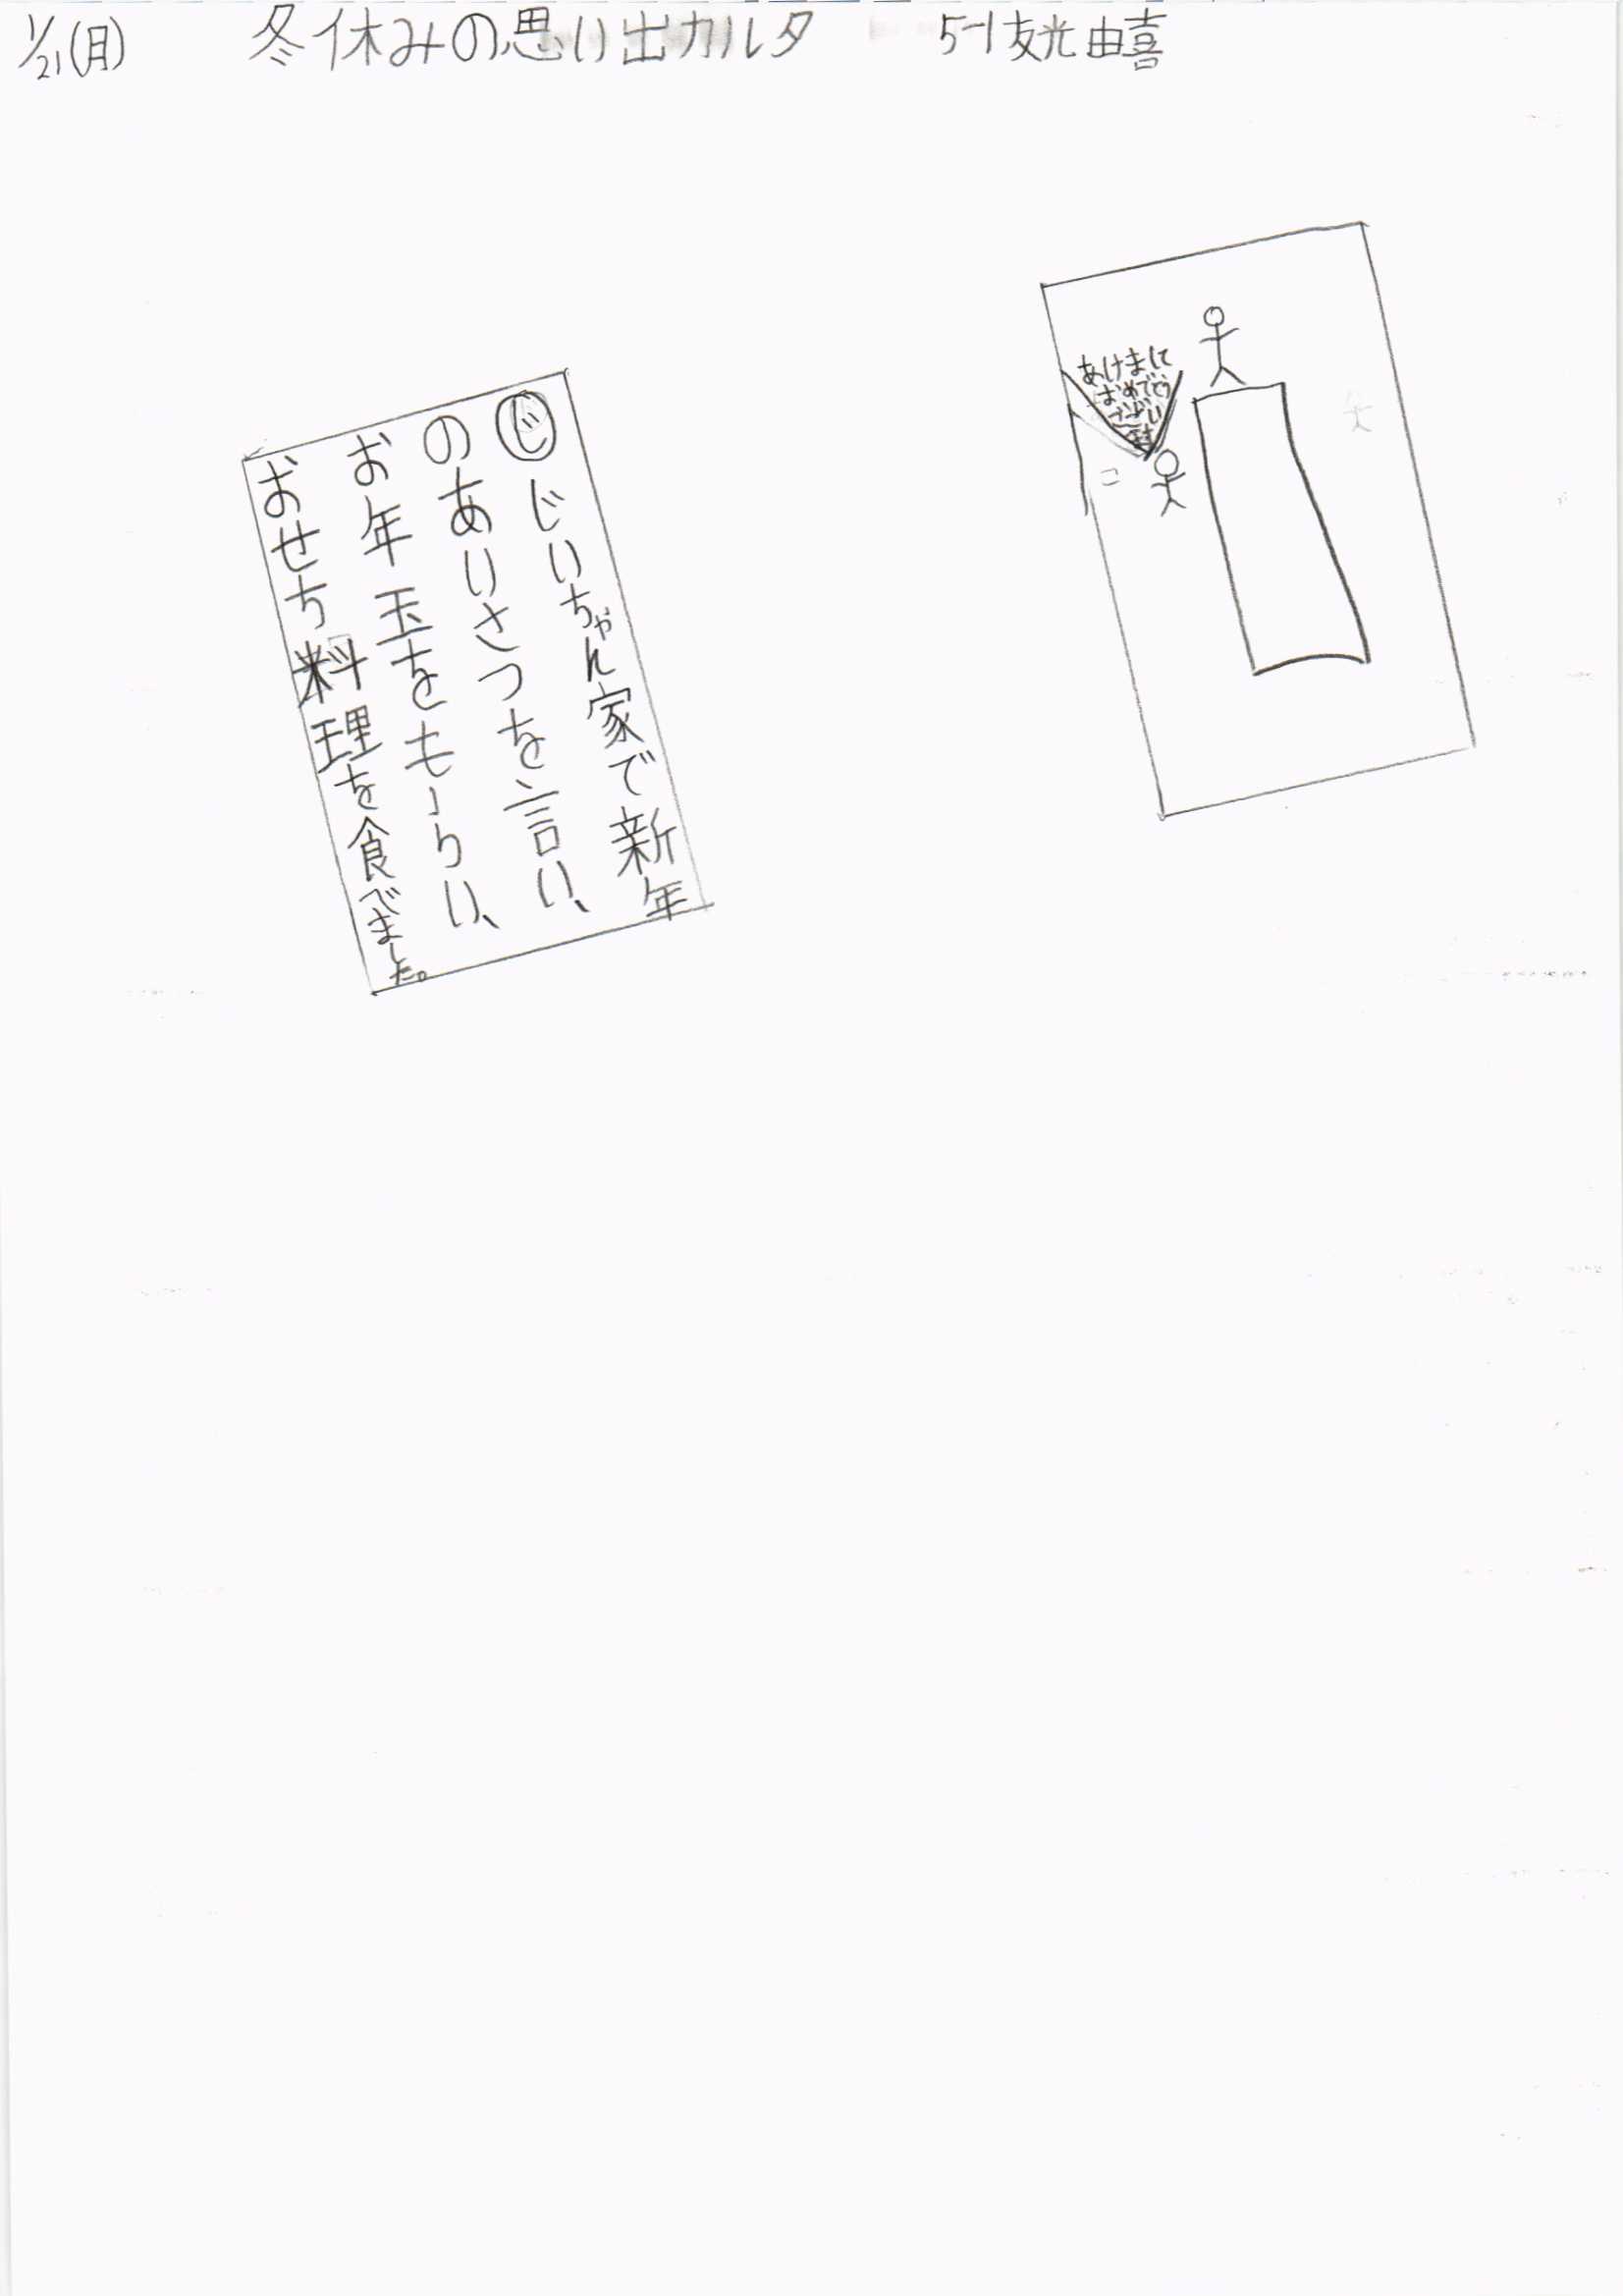 1/21(月) 冬休みの思い出カルタ 5-1 友光由喜
じ じいちゃん家で新年
のあいさつを言い、
お年玉をもらい、
おせち料理を食べました。
あけまして
おめでとう
ござい
ます